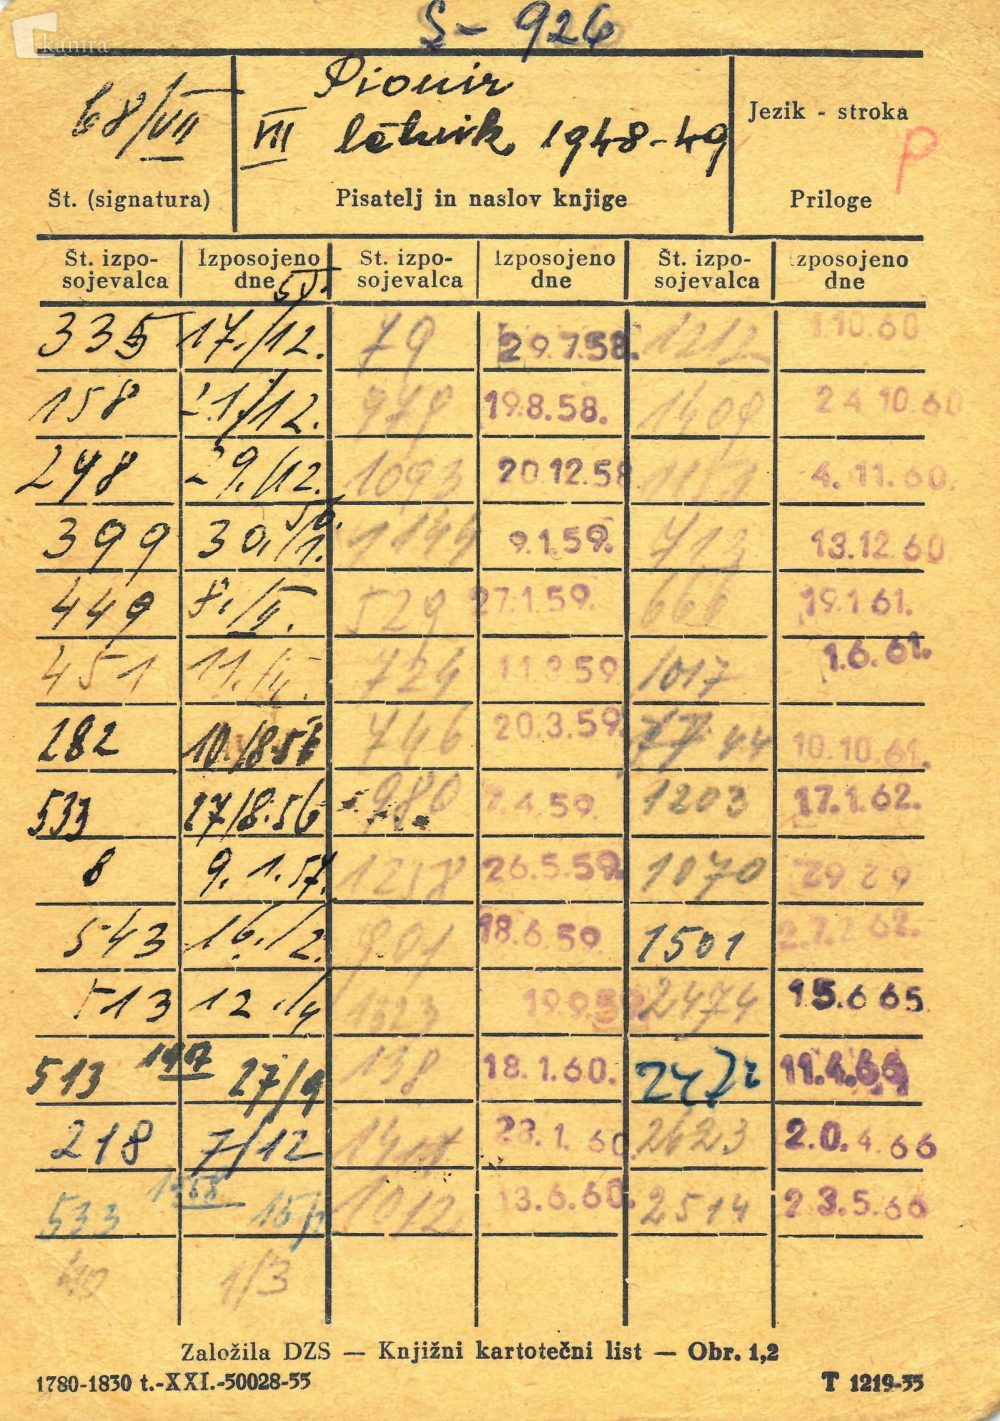 kamra
S - 926
68/VII
Pionir
VIII letnik 1948-49
Jezik - stroka
P
Št. (signatura)
Pisatelj in naslov knjige
Priloge
Št. izpo-sojevalca Izposojeno dne Št. izpo-sojevalca Izposojeno dne Št. izpo-sojevalca Izposojeno dne
335 17./12. 79 29.7.58. 1212 1.10.60
158 21/12. 978 19.8.58. 1408 24 10.60
298 29./12. 1093 20.12.58 4.11.60.
399 30./1. 1144 9.1.59. 713 13.12.60
449 8./II. 529 27.1.59. 666 19.1.61.
451 11./II. 724 11.3.59 1017 1.6.61.
282 10./8.56 746 20.3.59. 44 10.10.61.
533 27/8.56 980 7.4.59. 1203 17.1.62.
8 9.1.57. 1258 26.5.59. 1070 29 29
543 16./2. 901 18.6.59 1501 2.7.62.
513 12./4 1323 19.9.59 2474 15.6 65.
513 1957 27/9 138 18.1.60. 2472 11.4.66
218 7/12 28.1.60 2623 2.0.4.66
533 1958 15/2 1012 13.6.60. 2514 23.5.66
40 1/3
Založila DZS — Knjižni kartotečni list — Obr. 1,2
1780-1830 t.-XXI.-50028-55
T 1219-55